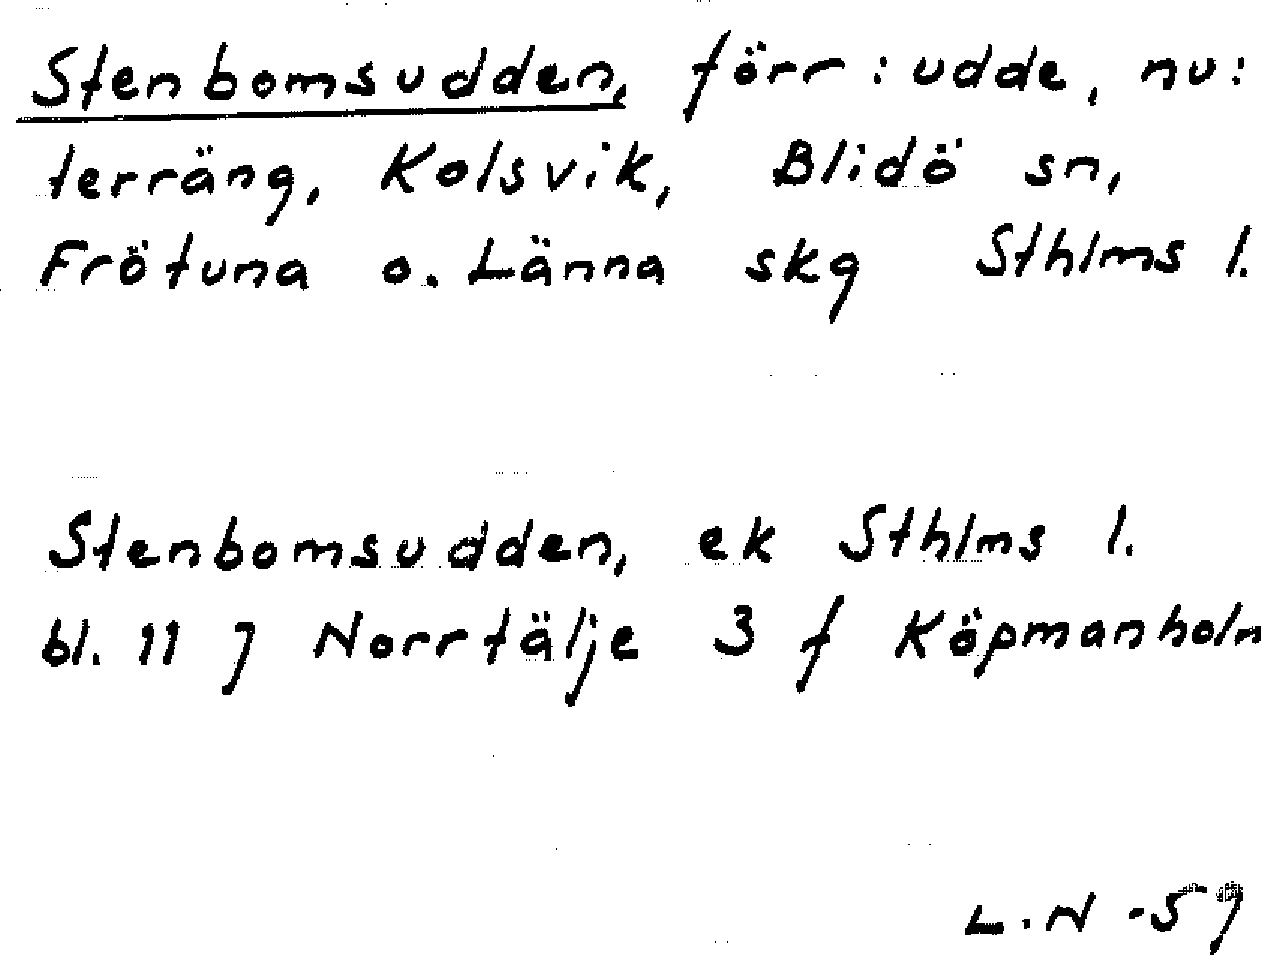 Stenbomsudden, förr: udde, nu:
terräng, Kolsvik, Blidö sn,
Frötuna o. Länna skg Sthlms l.
Stenbomsudden, ek Sthlms l.
bl. 11 J Norrtälje 3 f Köpmanholm
L.N -59